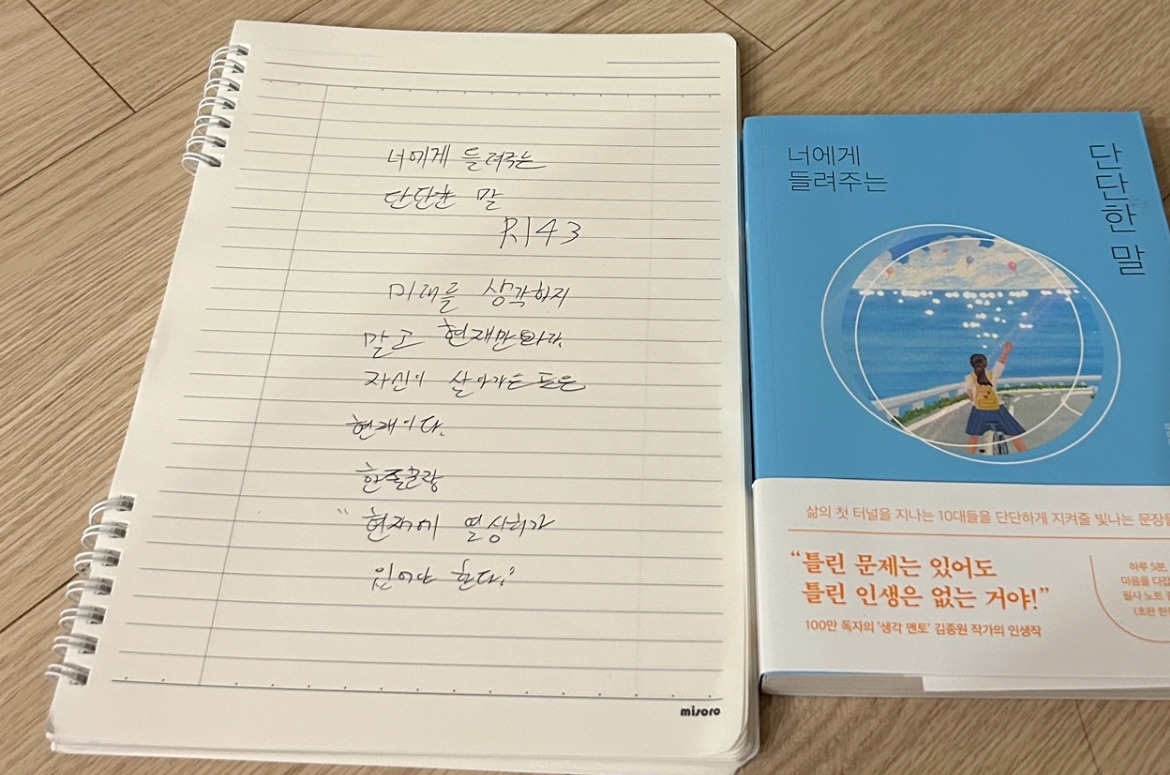 너에게 들려주는
단단한 말
P.143
미래를 생각하지
말고 현재만 봐라.
자신이 살아가는 곳은
현재이다.
한줄문장
"현재에 열심히가
있어야 한다."
misoro
너에게
들려주는
단단한 말
삶의 첫 터널을 지나는 10대들을 단단하게 지켜줄 빛나는 문장
"틀린 문제는 있어도
틀린 인생은 없는 거야!"
100만 독자의 '생각 멘토' 김종원 작가의 인생작
하루 5분,
마음을 다잡
필사 노트
(초판 한